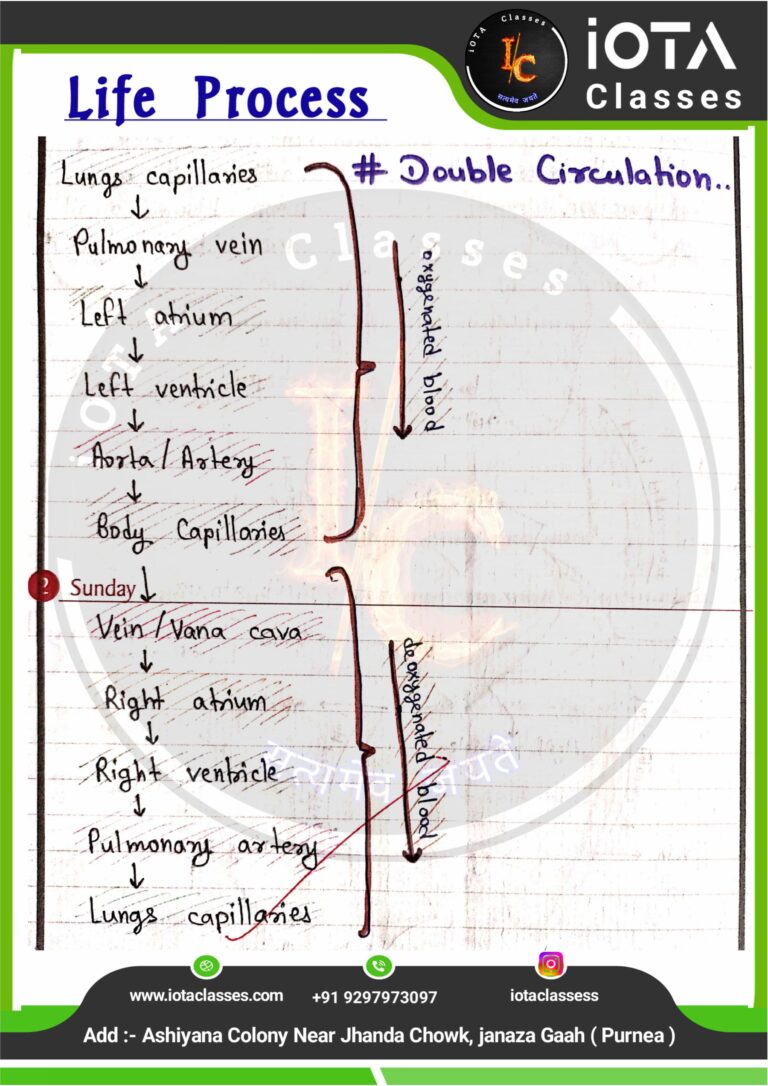 iOTA Classes
I/C
सत्यमेव जयते
iOTA
Classes
Life Process
# Double Circulation..
Lungs capillaries
↓
Pulmonary vein
↓
Left atrium
↓
Left ventricle
↓
Aorta / Artery
↓
Body Capillaries
oxygenated blood
2 Sunday ↓
Vein / Vana cava
↓
Right atrium
↓
Right ventricle
↓
Pulmonary artery
↓
Lungs capillaries
deoxygenated blood
iOTA Classes
I/C
सत्यमेव जयते
www.iotaclasses.com +91 9297973097 iotaclassess
Add :- Ashiyana Colony Near Jhanda Chowk, janaza Gaah ( Purnea )